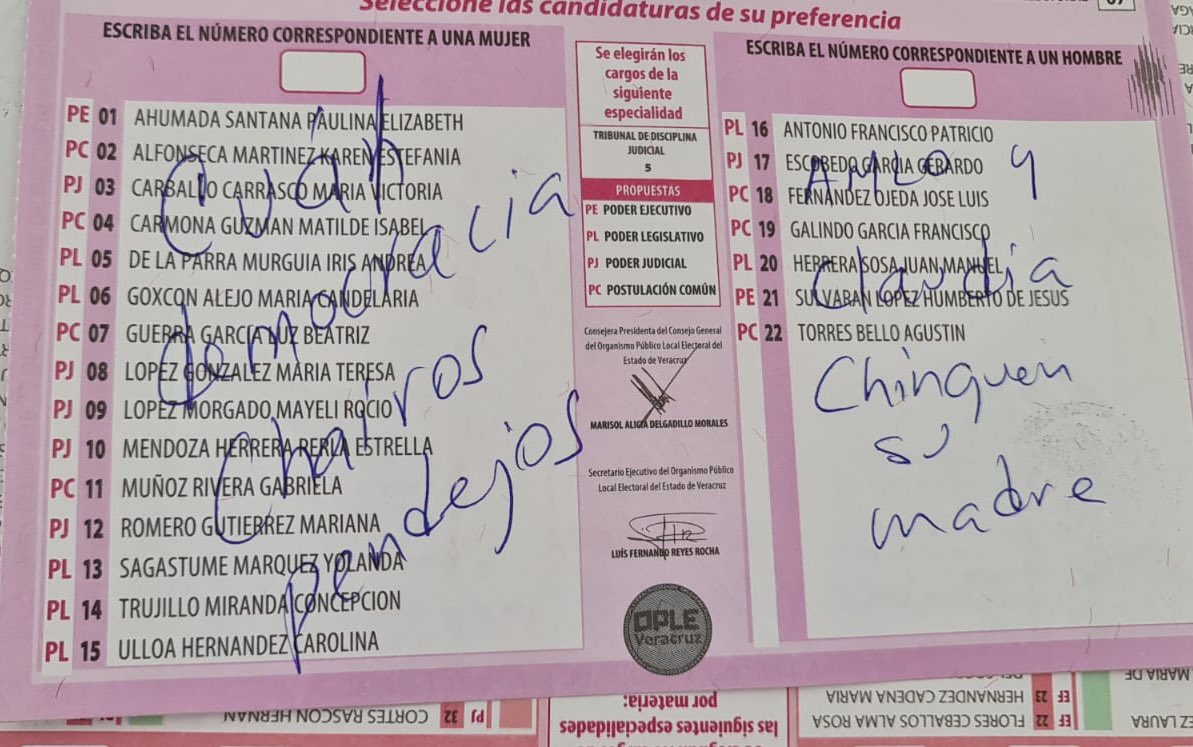 Seleccione las candidaturas de su preferencia
ESCRIBA EL NÚMERO CORRESPONDIENTE A UNA MUJER
PE 01 AHUMADA SANTANA PAULINA ELIZABETH
PC 02 ALFONSECA MARTINEZ KAREN ESTEFANIA
PJ 03 CARBALLO CARRASCO MARIA VICTORIA
PC 04 CARMONA GUZMAN MATILDE ISABEL
PL 05 DE LA PARRA MURGUIA IRIS ANDREA
PL 06 GOXCON ALEJO MARIA CANDELARIA
PC 07 GUERRA GARCIA LUZ BEATRIZ
PJ 08 LOPEZ GONZALEZ MARIA TERESA
PJ 09 LOPEZ MORGADO MAYELI ROCIO
PJ 10 MENDOZA HERRERA PERLA ESTRELLA
PC 11 MUÑOZ RIVERA GABRIELA
PJ 12 ROMERO GUTIERREZ MARIANA
PL 13 SAGASTUME MARQUEZ YOLANDA
PL 14 TRUJILLO MIRANDA CONCEPCION
PL 15 ULLOA HERNANDEZ CAROLINA
democracia
Chairos
pendejos
Se elegirán los
cargos de la
siguiente
especialidad
TRIBUNAL DE DISCIPLINA
JUDICIAL
5
PROPUESTAS
PE PODER EJECUTIVO
PL PODER LEGISLATIVO
PJ PODER JUDICIAL
PC POSTULACIÓN COMÚN
Consejera Presidenta del Consejo General
del Organismo Público Local Electoral del
Estado de Veracruz
MARISOL ALICIA DELGADILLO MORALES
Secretario Ejecutivo del Organismo Público
Local Electoral del Estado de Veracruz
LUIS FERNANDO REYES ROCHA
OPLE
Veracruz
ESCRIBA EL NÚMERO CORRESPONDIENTE A UN HOMBRE
PL 16 ANTONIO FRANCISCO PATRICIO
PJ 17 ESCOBEDO GARCIA GERARDO
PC 18 FERNANDEZ OJEDA JOSE LUIS
PC 19 GALINDO GARCIA FRANCISCO
PL 20 HERRERA SOSA JUAN MANUEL
PE 21 SULVARAN LOPEZ HUMBERTO DE JESUS
PC 22 TORRES BELLO AGUSTIN
AMLO y
Claudia
Chinguen
su
madre
PJ 32 CORTES RASCON HERNAN
las siguientes especialidades
por materia:
EF 22 FLORES CEBALLOS ALMA ROSA
EF 23 HERNANDEZ CADENA MARIA